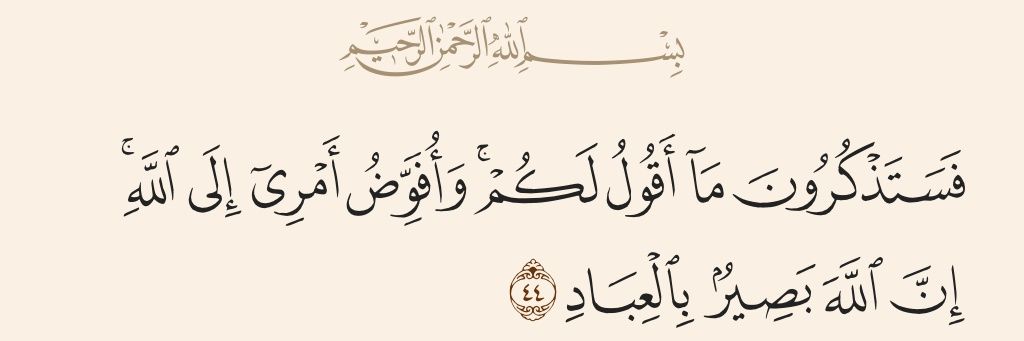 بِسْمِ ٱللَّهِ ٱلرَّحْمَٰنِ ٱلرَّحِيمِ
فَسَتَذْكُرُونَ مَآ أَقُولُ لَكُمْ ۚ وَأُفَوِّضُ أَمْرِىٓ إِلَى ٱللَّهِ ۚ
إِنَّ ٱللَّهَ بَصِيرٌۢ بِٱلْعِبَادِ ٤٤